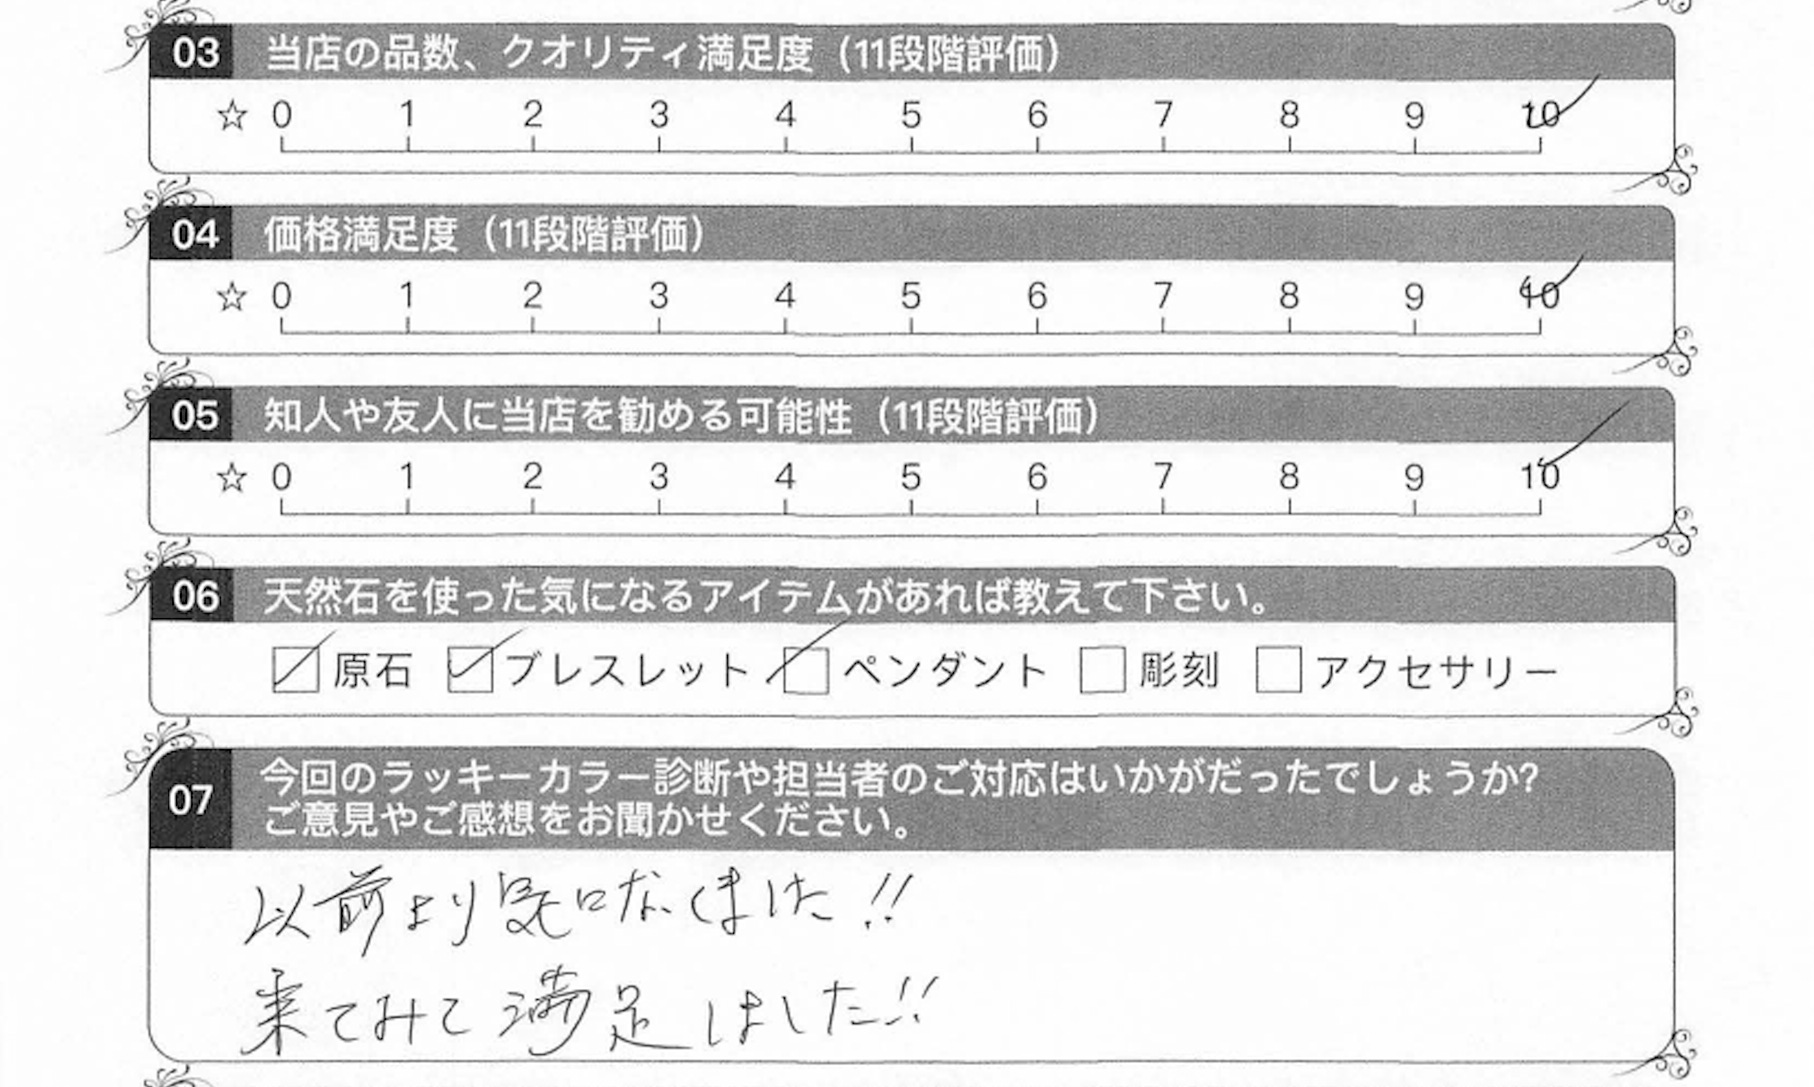 03 当店の品数、クオリティ満足度（11段階評価）
☆ 0 1 2 3 4 5 6 7 8 9 10
04 価格満足度（11段階評価）
☆ 0 1 2 3 4 5 6 7 8 9 10
05 知人や友人に当店を勧める可能性（11段階評価）
☆ 0 1 2 3 4 5 6 7 8 9 10
06 天然石を使った気になるアイテムがあれば教えて下さい。
☑ 原石 ☑ ブレスレット ☑ ペンダント □ 彫刻 □ アクセサリー
07 今回のラッキーカラー診断や担当者のご対応はいかがだったでしょうか?
ご意見やご感想をお聞かせください。
以前より気に ました!!
来てみて満足しました!!